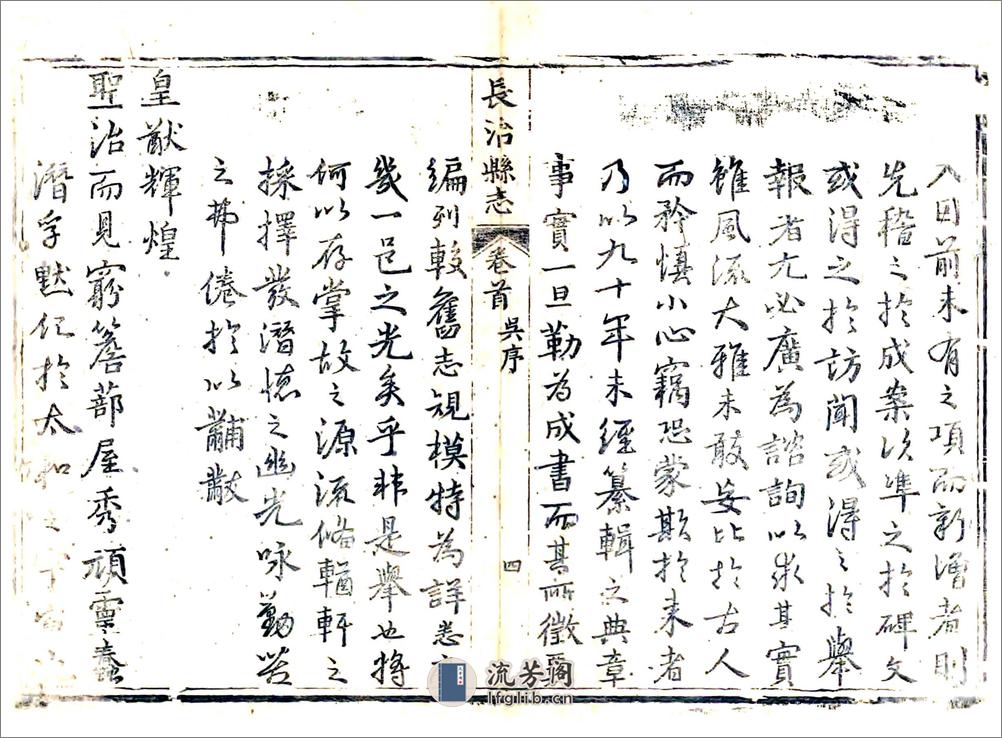 入目前未有之項而新增者則
先稽之於成案次準之於碑文
或得之於訪聞或得之於舉
報者尤必廣為諮詢以求其實
雖風流大雅未敢妄比於古人
而矜慎小心竊恐蒙欺於來者
乃以九十年未經纂輯之典章
事實一旦勒為成書而其所徵
長治縣志
卷首
吳序
四
編列較舊志規模特為詳悉
幾一邑之光矣乎非是舉也將
何以存掌故之源流備輶軒之
採擇發潛德之幽光咏勤苦
之弗倦於以黼黻
皇猷輝煌
聖治而見窮簷蔀屋秀頑靈蠢
潛孚默化於太和之宇
流芳閣
lfglib.cn